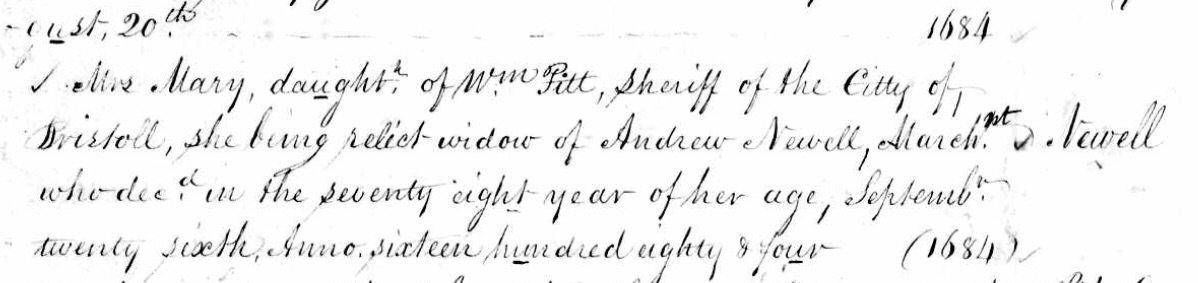 -gust, 20th. 1684
Mrs Mary, daughtr. of Wm. Pitt, Sheriff of the Citty of
Bristoll, she being relict widow of Andrew Newell, March.nt Newell
who decd. in the seventy eight year of her age, Septembr.
twenty sixth, Anno. sixteen hundred eighty & four (1684)